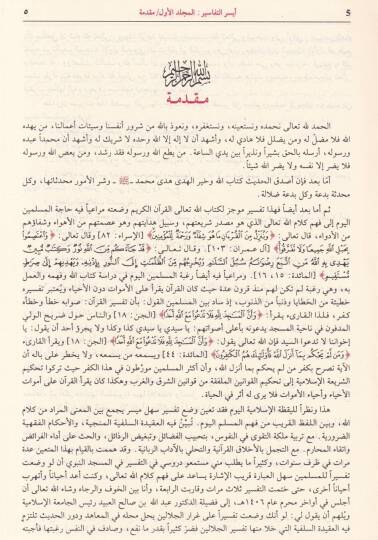 5 أيسر التفاسير : المجلد الأول/مقدمة ٥
بسم الله الرحمن الرحيم
مقدمة
الحمد لله تعالى نحمده ونستعينه، ونستغفره، ونعوذ بالله من شرور أنفسنا وسيئات أعمالنا، من يهده
فلا مضل له ومن يضلل فلا هادي له، وأشهد أن لا إله إلا الله وحده لا شريك له وأشهد أن محمداً عبده
ورسوله، أرسله بالحق بشيراً ونذيراً بين يدي الساعة. من يطع الله ورسوله فقد رشد، ومن يعص الله ورسوله
فلا يضر إلا نفسه ولا يضر الله شيئاً.
أمّا بعد فإن أصدق الحديث كتاب الله وخير الهدى هدى محمد ـ ﷺ ـ وشر الأمور محدثاتها، وكل
محدثة بدعة وكل بدعة ضلالة.
ثم أما بعد أيضاً فهذا تفسير موجز لكتاب الله تعالى القرآن الكريم وضعته مراعياً فيه حاجة المسلمين
اليوم إلى فهم كلام الله تعالى الذي هو مصدر شريعتهم، وسبيل هدايتهم وهو عصمتهم من الأهواء وشفاؤهم
من الأدواء، قال تعالى: ﴿وَنُنَزِّلُ مِنَ الْقُرْءَانِ مَا هُوَ شِفَآءٌ وَرَحْمَةٌ لِّلْمُؤْمِنِينَ﴾ [الإسراء: ٨٢] وقال تعالى: ﴿وَاعْتَصِمُوا
بِحَبْلِ اللَّهِ جَمِيعًا وَلَا تَفَرَّقُوا﴾ [آل عمران: ١٠٣]. وقال تعالى: ﴿قَدْ جَآءَكُم مِّنَ اللَّهِ نُورٌ وَكِتَابٌ مُّبِينٌ
يَهْدِي بِهِ اللَّهُ مَنِ اتَّبَعَ رِضْوَانَهُ سُبُلَ السَّلَامِ وَيُخْرِجُهُم مِّنَ الظُّلُمَاتِ إِلَى النُّورِ بِإِذْنِهِ وَيَهْدِيهِمْ إِلَى صِرَاطٍ
مُّسْتَقِيمٍ﴾ [المائدة: ١٥، ١٦]. ومراعياً فيه أيضاً رغبة المسلمين اليوم في دراسة كتاب الله وفهمه والعمل
به، وهي رغبة لم تكن لهم منذ قرون عدة حيث كان القرآن يقرأ على الأموات دون الأحياء، ويُعتبر تفسيره
خطيئة من الخطايا وذنباً من الذنوب، إذ ساد بين المسلمين القول: بأن تفسير القرآن: صوابه خطأ وخطأه
كفر، فلذا القارىء يقرأ: ﴿وَأَنَّ الْمَسَاجِدَ لِلَّهِ فَلَا تَدْعُوا مَعَ اللَّهِ أَحَدًا﴾ [الجن: ١٨] والناس حول ضريح الولي
المدفون في ناحية المسجد يدعونه بأعلى أصواتهم: يا سيدي يا سيدي كذا وكذا ولا يجرؤ أحد أن يقول: يا
إخواننا لا تدعوا السيد فإن الله تعالى يقول: ﴿وَأَنَّ الْمَسَاجِدَ لِلَّهِ فَلَا تَدْعُوا مَعَ اللَّهِ أَحَدًا﴾ [الجن: ١٨] ويقرأ القارىء،
﴿وَمَن لَّمْ يَحْكُم بِمَآ أَنزَلَ اللَّهُ فَأُولَٰئِكَ هُمُ الْكَافِرُونَ﴾ [المائدة: ٤٤] ويسمعه من يسمعه، ولا يخطر على باله أن
الآية تصرح بكفر من لم يحكم بما أنزل الله، وأن أكثر المسلمين مورّطون في هذا الكفر حيث تركوا تحكيم
الشريعة الإسلامية إلى تحكيم القوانين الملفقة من قوانين الشرق والغرب وهكذا كان يقرأ القرآن على أموات
الأحياء وأحياء الأموات فلا يرى له أثر في الحياة.
هذا ونظراً لليقظة الإسلامية اليوم فقد تعين وضع تفسير سهل ميسر يجمع بين المعنى المراد من كلام
الله، وبين اللفظ القريب من فهم المسلم اليوم. تُبيَّنُ فيه العقيدة السلفية المنجية، والأحكام الفقهية
الضرورية. مع تربية ملكة التقوى في النفوس، بتحبيب الفضائل وتبغيض الرذائل، والحث على أداء الفرائض
واتقاء المحارم. مع التجمل بالأخلاق القرآنية والتحلي بالآداب الربانية. وقد هممت بالقيام بهذا المتعين عدة
مرات في ظرف سنوات، وكثيراً ما يطلب مني مستمعو دروسي في التفسير في المسجد النبوي أن لو وضعت
تفسيراً للمسلمين سهل العبارة قريب الإشارة يساعد على فهم كلام الله تعالى، وكنت أعد أحياناً وأتهرب
أحياناً أخرى، حتى ختمت التفسير ثلاث مرات وقاربت الرابعة، وأنا بين الخوف والرجاء وشاء الله تعالى أن
أجلس في أواخر محرم عام ١٤٠٦هـ إلى فضيلة الدكتور عبد الله بن صالح العبيد رئيس الجامعة الإسلامية
ويُلهم أن يقول لي: لو أنك وضعت تفسيراً على غرار الجلالين يحل محله في المعاهد ودور الحديث تلتزم
فيه العقيدة السلفية التي خلا منها تفسير الجلالين فضرّ كثيراً بقدر ما نفع، وصادف في النفس رغبتها فأجبته